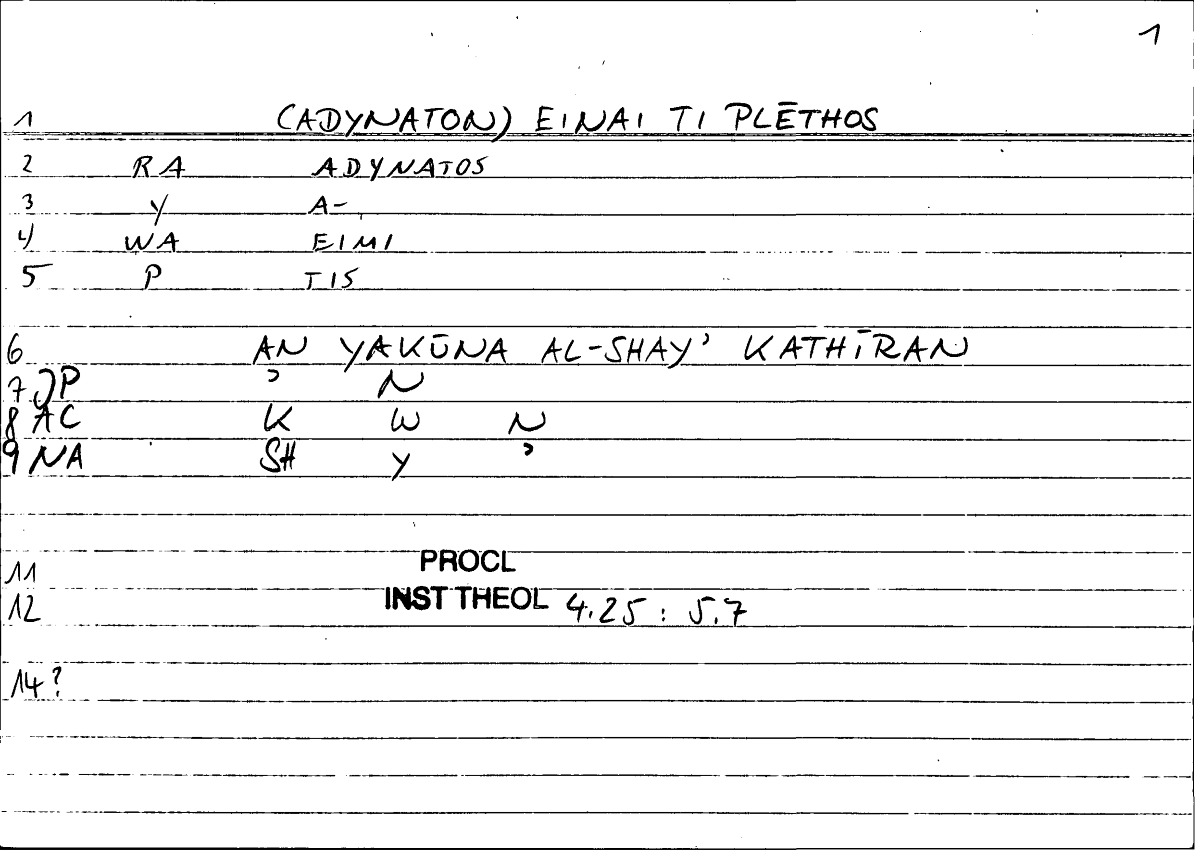 1
1 (ADYNATON) EINAI TI PLĒTHOS
2 RA ADYNATOS
3 Y A-
4 WA EIMI
5 P TIS
6 AN YAKŪNA AL-SHAY’ KATHĪRAN
7 JP ’ N
8 AC K W N
9 NA SH Y ’
11 PROCL
12 INST THEOL 4.25 : 5.7
14?